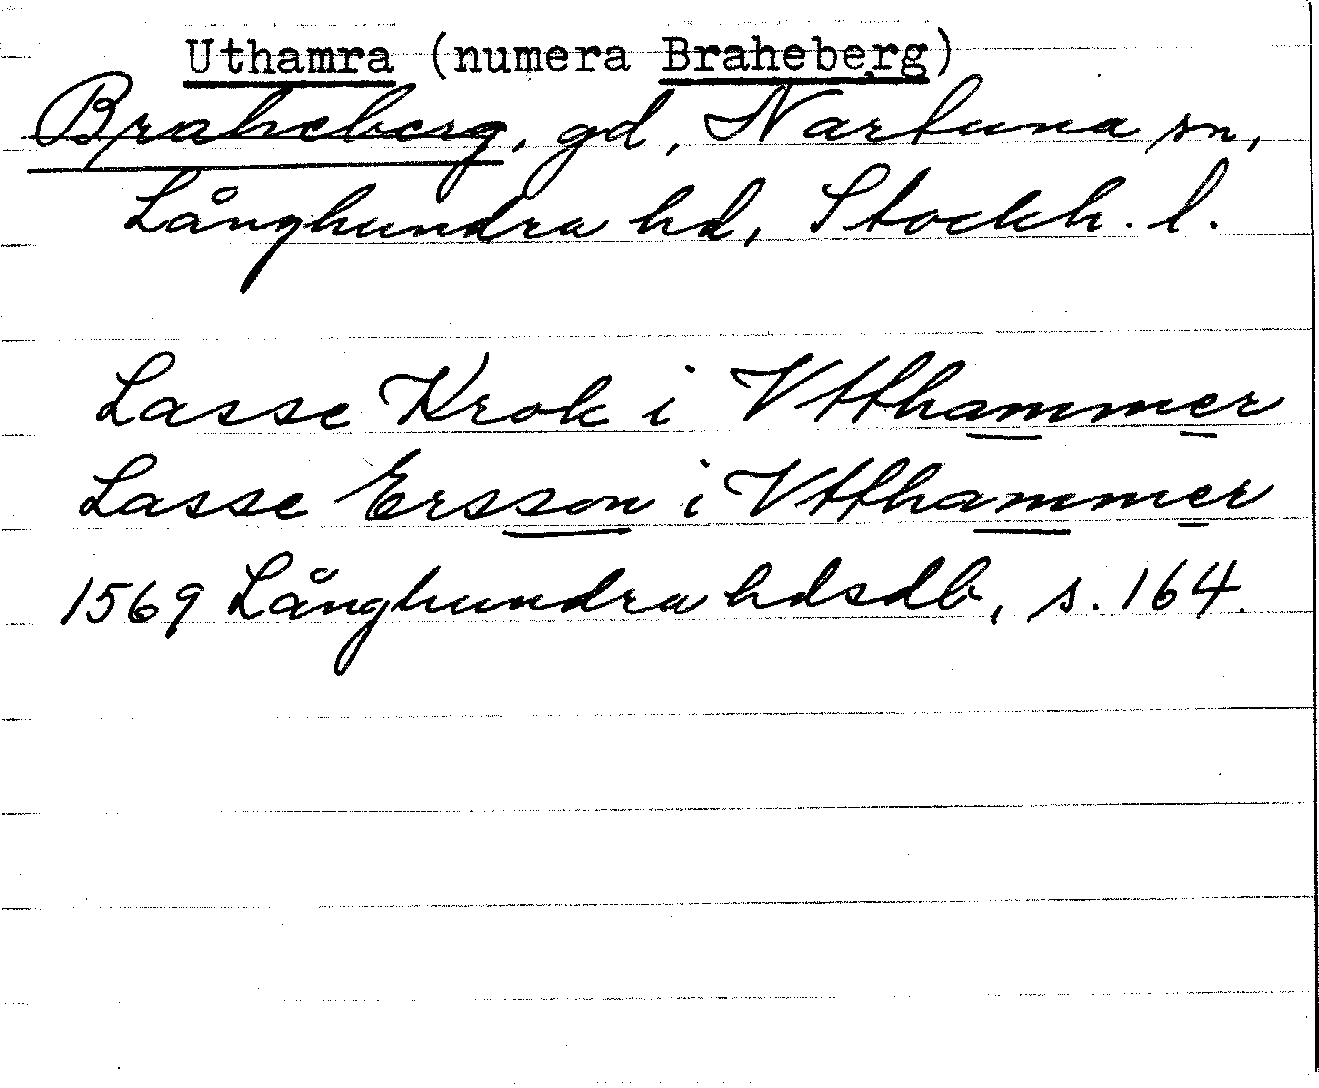 Uthamra (numera Braheberg)
Braheberg, gd, Nartuna sn,
Långhundra hd, Stockh. l.
Lasse Krok i Vtthammer
Lasse Ersson i Vtthammer
1569 Långhundra hdsdb, s. 164.